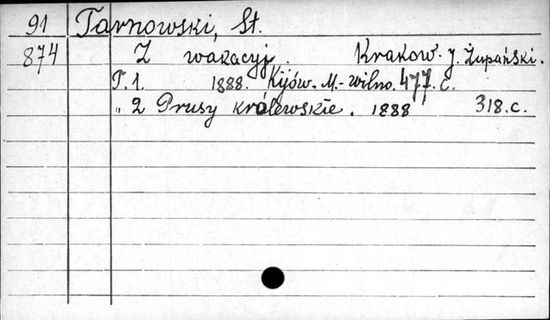 91 Tarnowski, St.
874 Z wakacyj. Krakow. J. Żupański.
T. 1. 1888. Kijów.-M.-Wilno. 477. c.
„ 2 Prusy królewskie. 1888 318. c.